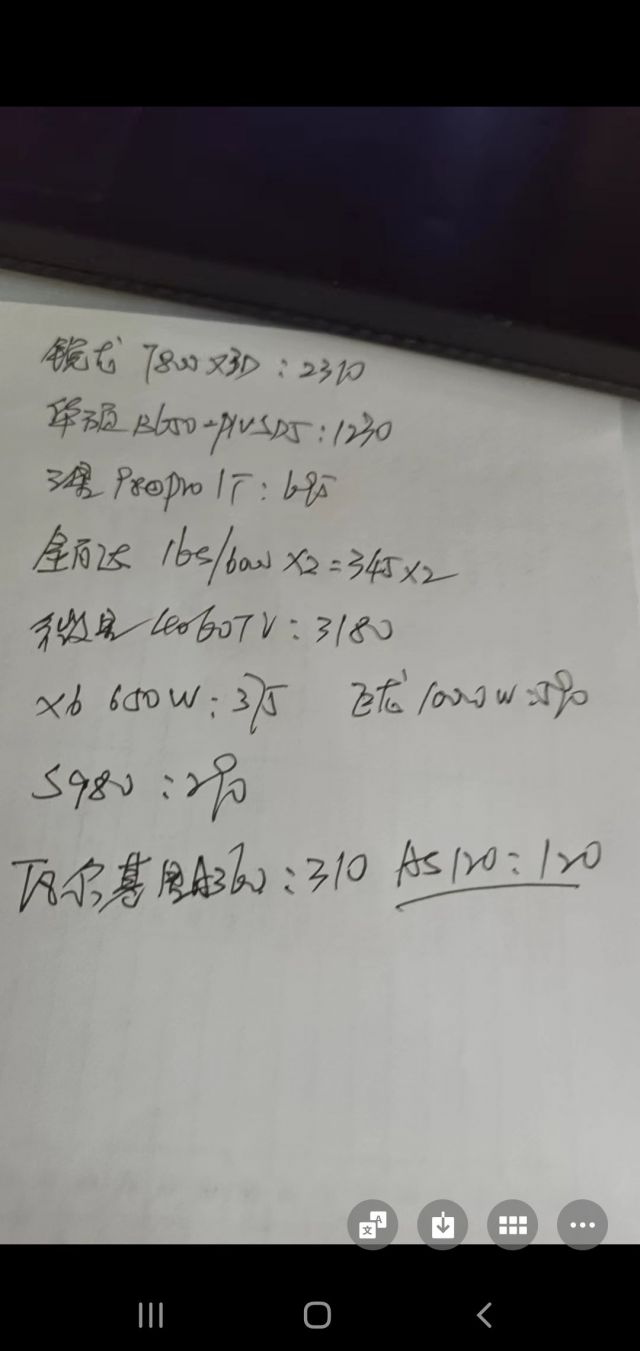 锐龙 7800X3D：2310
华硕 B650-PLUSD5：1230
三星 980pro 1T：695
金百达 16G/6000 X2=345X2
微星 4060TI：3180
X6 650W：375 飞龙 1000W：590
S980：290
瓦尔基里A360：310 AS120：120